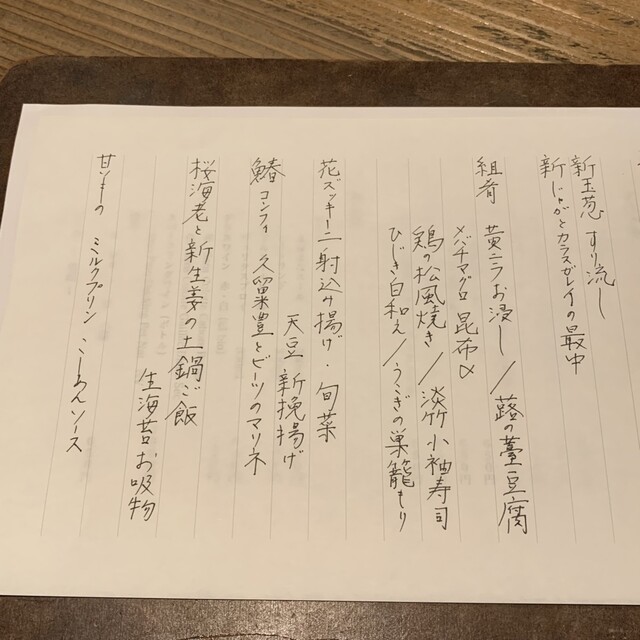 新玉葱 すり流し
新じゃがとカラスガレイの最中
組肴 黄ニラお浸し／蕗の薹豆腐
メバチマグロ 昆布〆
鶏の松風焼き／淡竹小袖寿司
ひじき白和え／うこぎの巣籠もり
花ズッキーニ射込み揚げ・旬菜
天豆 新挽揚げ
鰆コンフィ 久留米豊とビーツのマリネ
桜海老と新生姜の土鍋ご飯
生海苔お吸物
甘いもの ミルクプリン こしあんソース